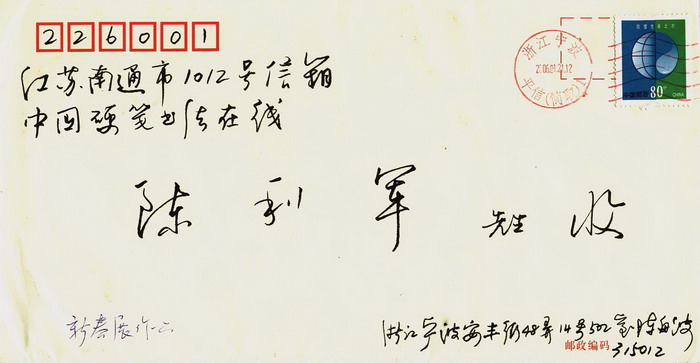 226001
江苏南通市1012号信箱
中国硬笔书法在线
陈利军 先生 收
新春展作二
浙江宁波安丰街48弄14号502室 陈
邮政编码
315012
浙江宁波
2006.01.21.12
平信(
80分
CHINA